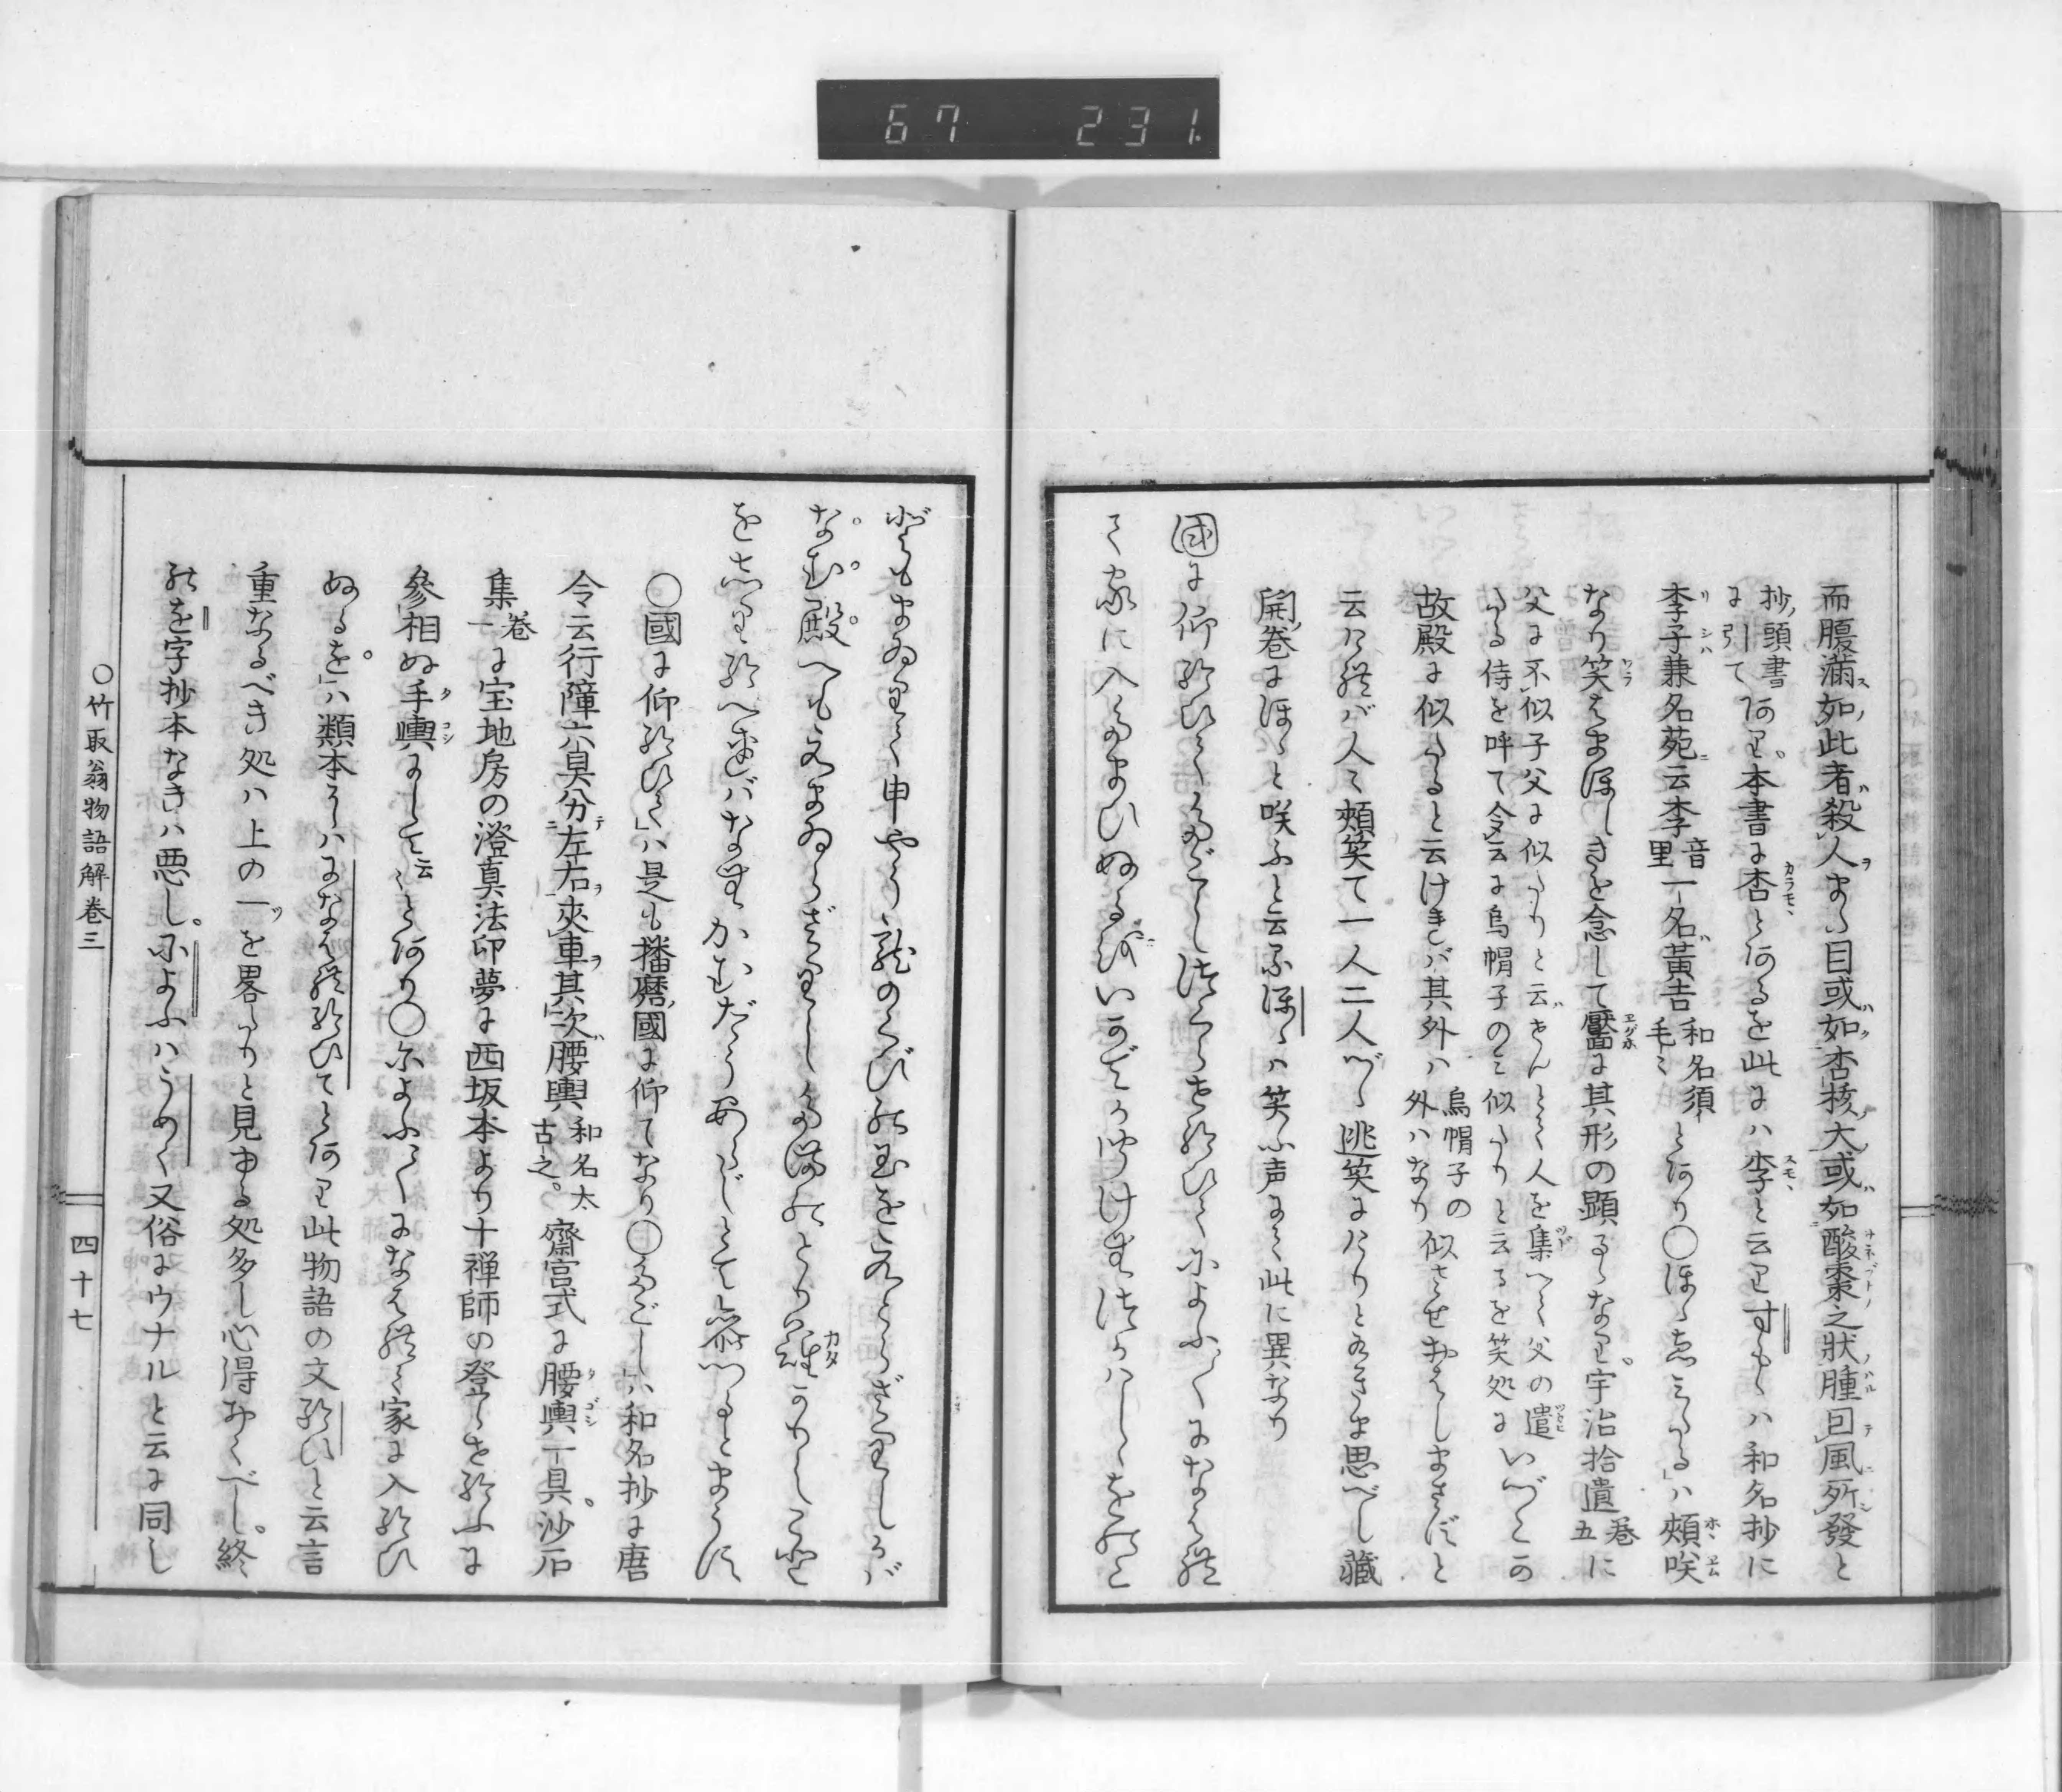 67 231
而腹滿如此者殺人ま〻目或如杏核大或如酸棗之狀腫回風所發と
抄頭書に引てあり本書に杏とあるを此には李と云りすもゝは和名抄に
李子兼名苑云李音里一名黃吉和名須毛〻とあり○ほゝゑみたるは頰咲
なり笑はまほしきを念して靨に其形の顕るゝなり宇治拾遺巻五に
父に不似子父に似たりと云ぜんとて人を集へて父の遣
たる侍を呼て令云に烏帽子のみ似たりと云るを笑処にいづこの
故殿に似たると云けきバ其外ハ烏帽子の外ハなり似させおはしまさずと
云けれバ人〻頰笑て一人二人づゝ逃笑にけりとあるさま思べし藏
開巻にほゝと咲ふと云ふほゝは笑ふ声にて此に異なり
國に仰給ひてたごし作らせ給ひてによふ〳〵になはれ
て家に入たまひぬるをいかでか聞けむ仕うまつりしをのこ
どもまゐりて申やう龍のくびの玉をえとらざりしかバ
なむ殿へもえまゐらざりし玉のとり難かりしこと
をしり給へればなむかむだうあらじとて參つるとまうす
○國に仰給ひては是も播磨國に仰てなり○たごしは和名抄に唐
令云行障六具分左右夾車其次腰輿和名太古之齋宮式に腰輿一具沙石
集巻一に宝地房の澄真法印夢に西坂本より十禅師の登らせ給ふに
參相ぬ手輿にして云〻とあり○によふ〳〵になはれて家に入給ひ
ぬるをハ類本にハになはれ給ひてとあり此物語の文給ひと云言
重なるべき処ハ上の一ツを畧たりと見ゆる処多し心得おくべし終
のを字抄本なきハ悪しによふハうめく又俗にウナルと云に同し
○竹取翁物語解巻三
四十七